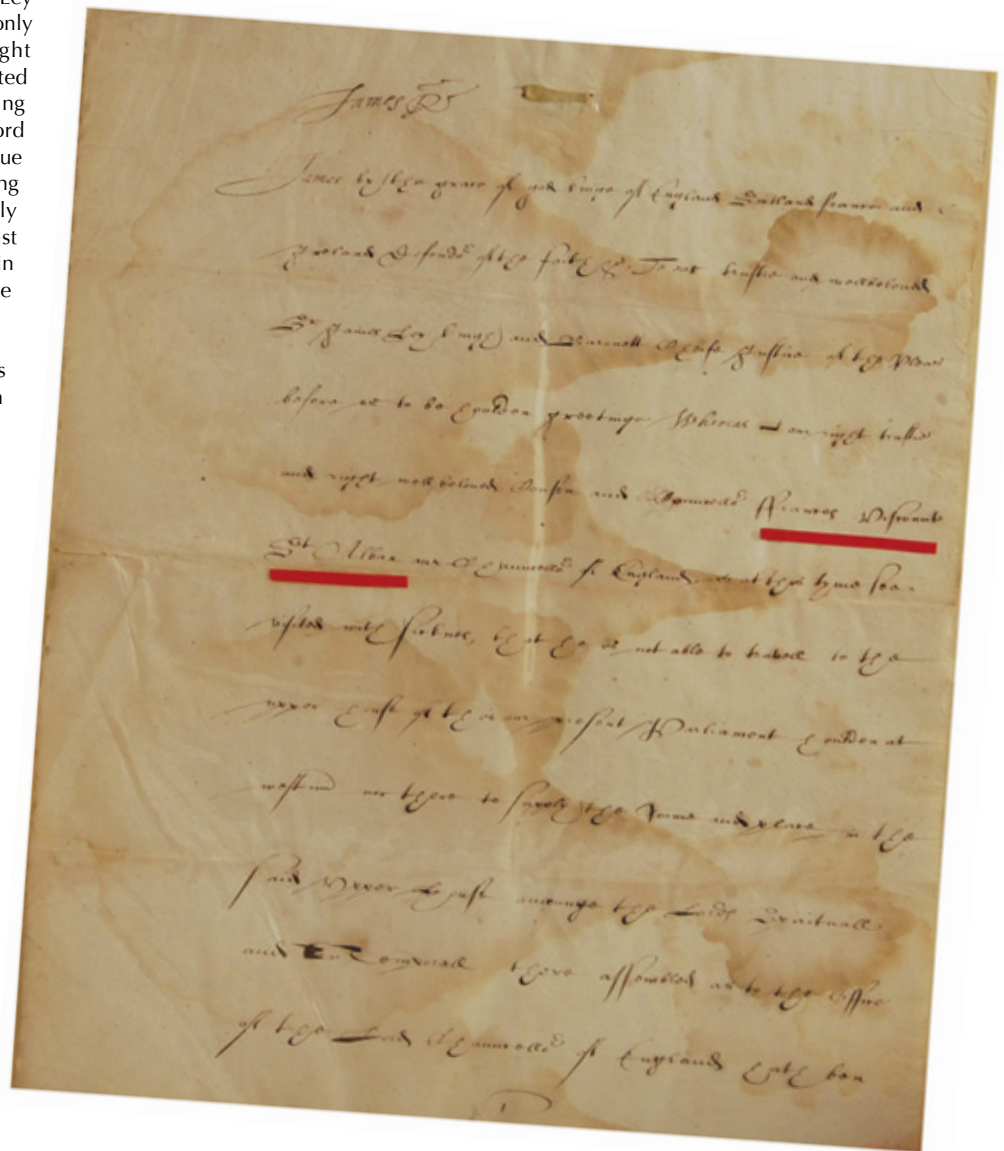 Ley
only
ght
ted
ing
ord
ue
ng
ly
est
in
e
s
James R
James by the grace of god kinge of England Scotland France and
Ireland Defendr of the faith &c To our trustie and welbeloved
Sr James Ley knight and Baronett Cheife Justice of the Pleas
before us to be houlden greetinge Whereas our right trustie
and right welbeloved Cousen and Chauncellor ffrancis Viscount
St Alban our Chauncellor of England is at this tyme soe
visited with sicknes, that he is not able to travell to the
upper house of this our present Parliament houlden at
westmr nor there to supply the roome and place in the
said Upper House amonge the Lords Spirituall
and Temporall there assembled as to the office
of the Lord Chauncellor of England hath bin